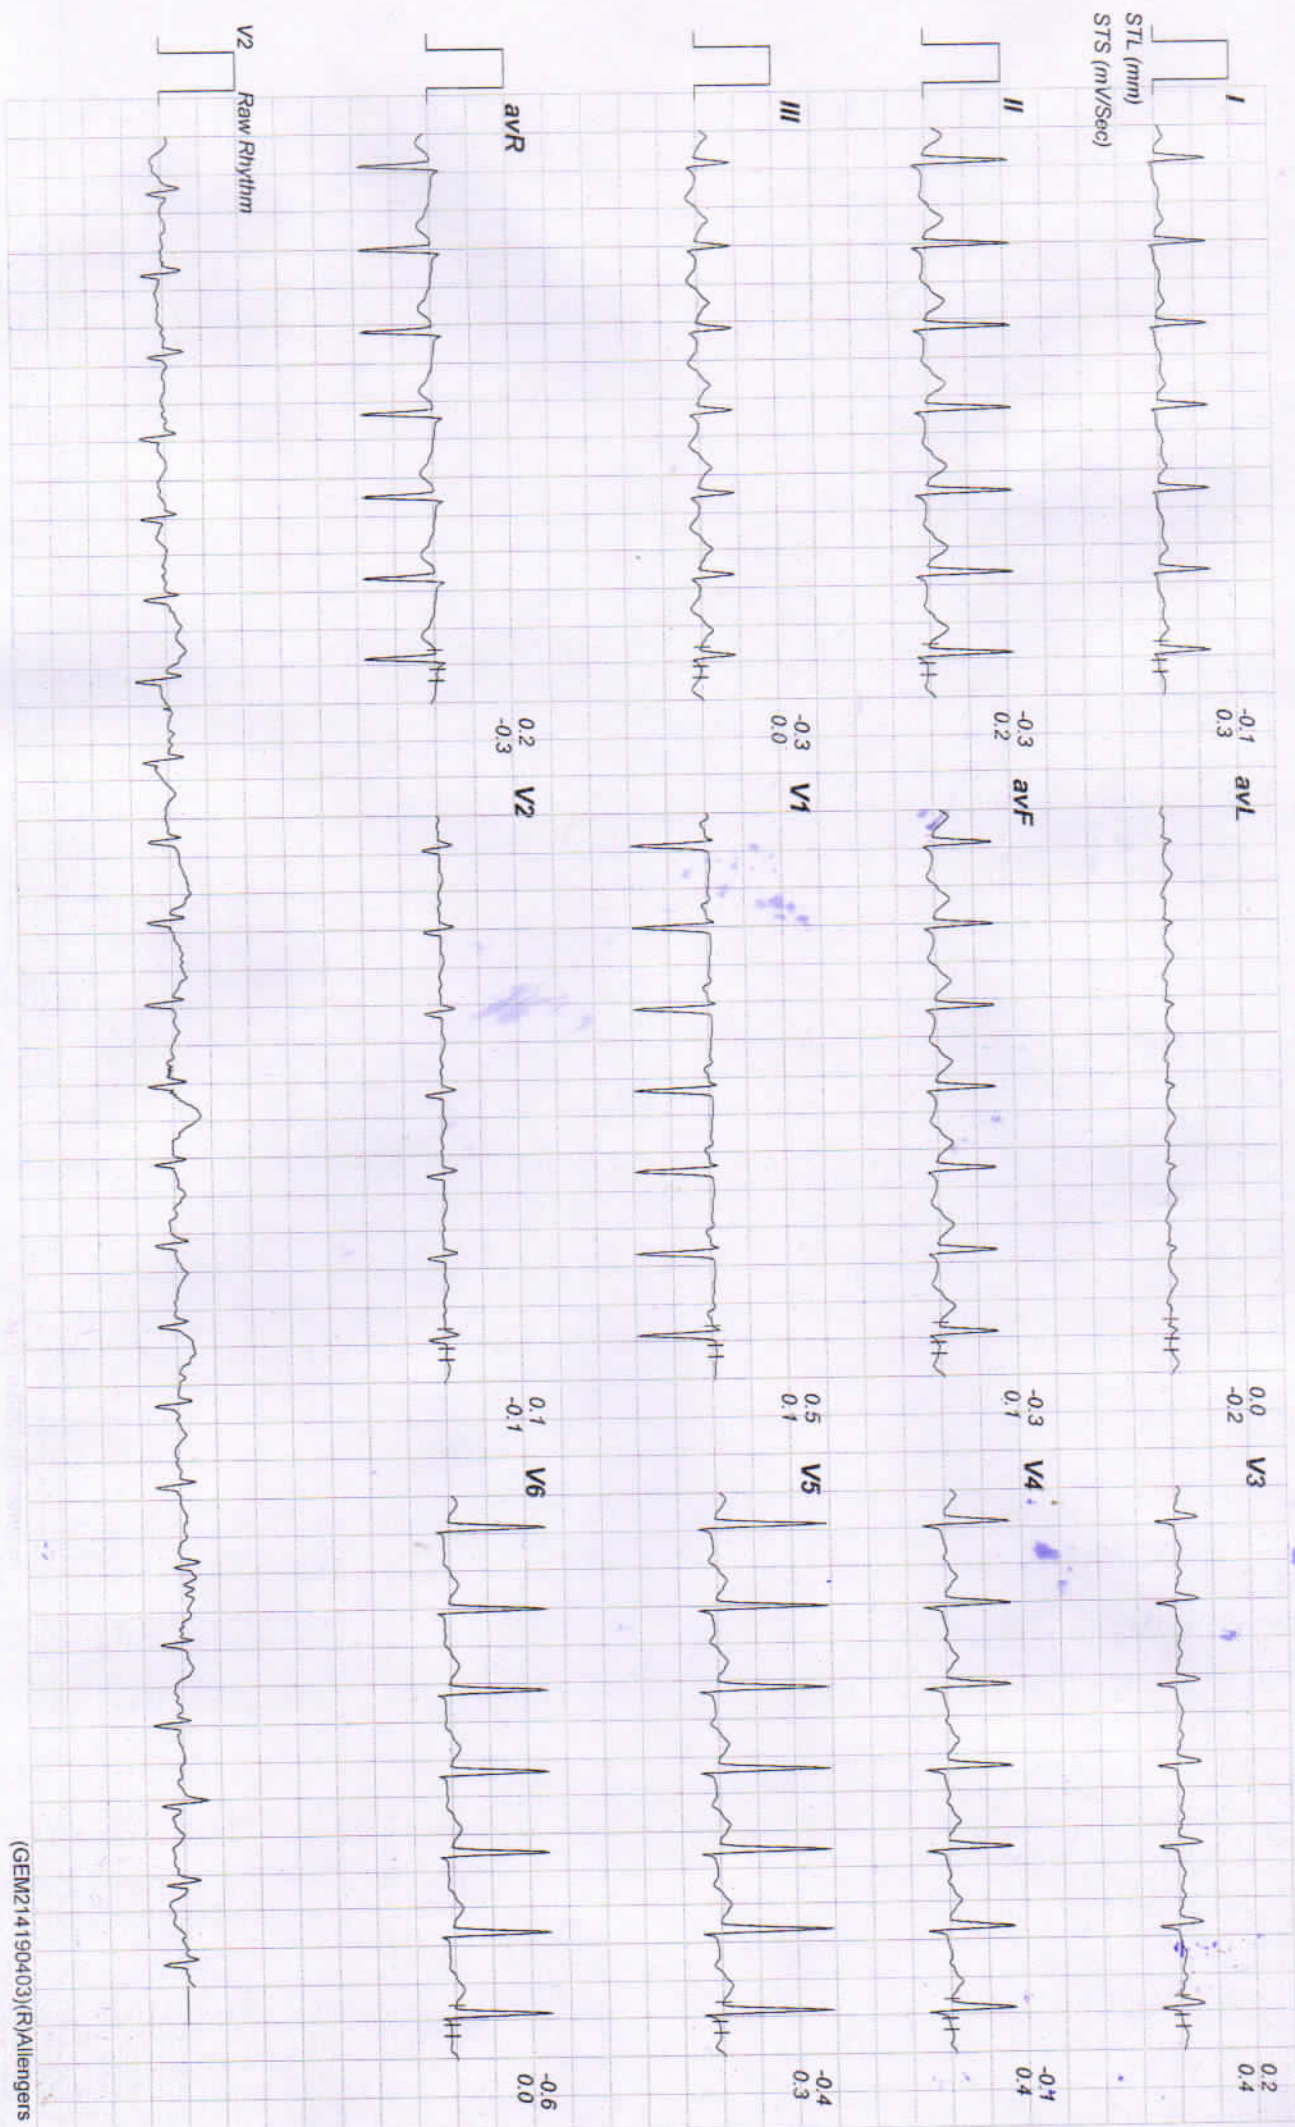 STL (mm)
STS (mV/Sec)
I
-0.1
0.3
avL
0.0
-0.2
V3
0.2
0.4
II
-0.3
0.2
avF
-0.3
0.1
V4
0.4
III
-0.3
0.0
V1
0.5
0.1
V5
-0.4
0.3
avR
0.2
-0.3
V2
0.1
-0.1
V6
-0.6
0.0
V2 Raw Rhythm
(GEM214190403)(R)Allengers